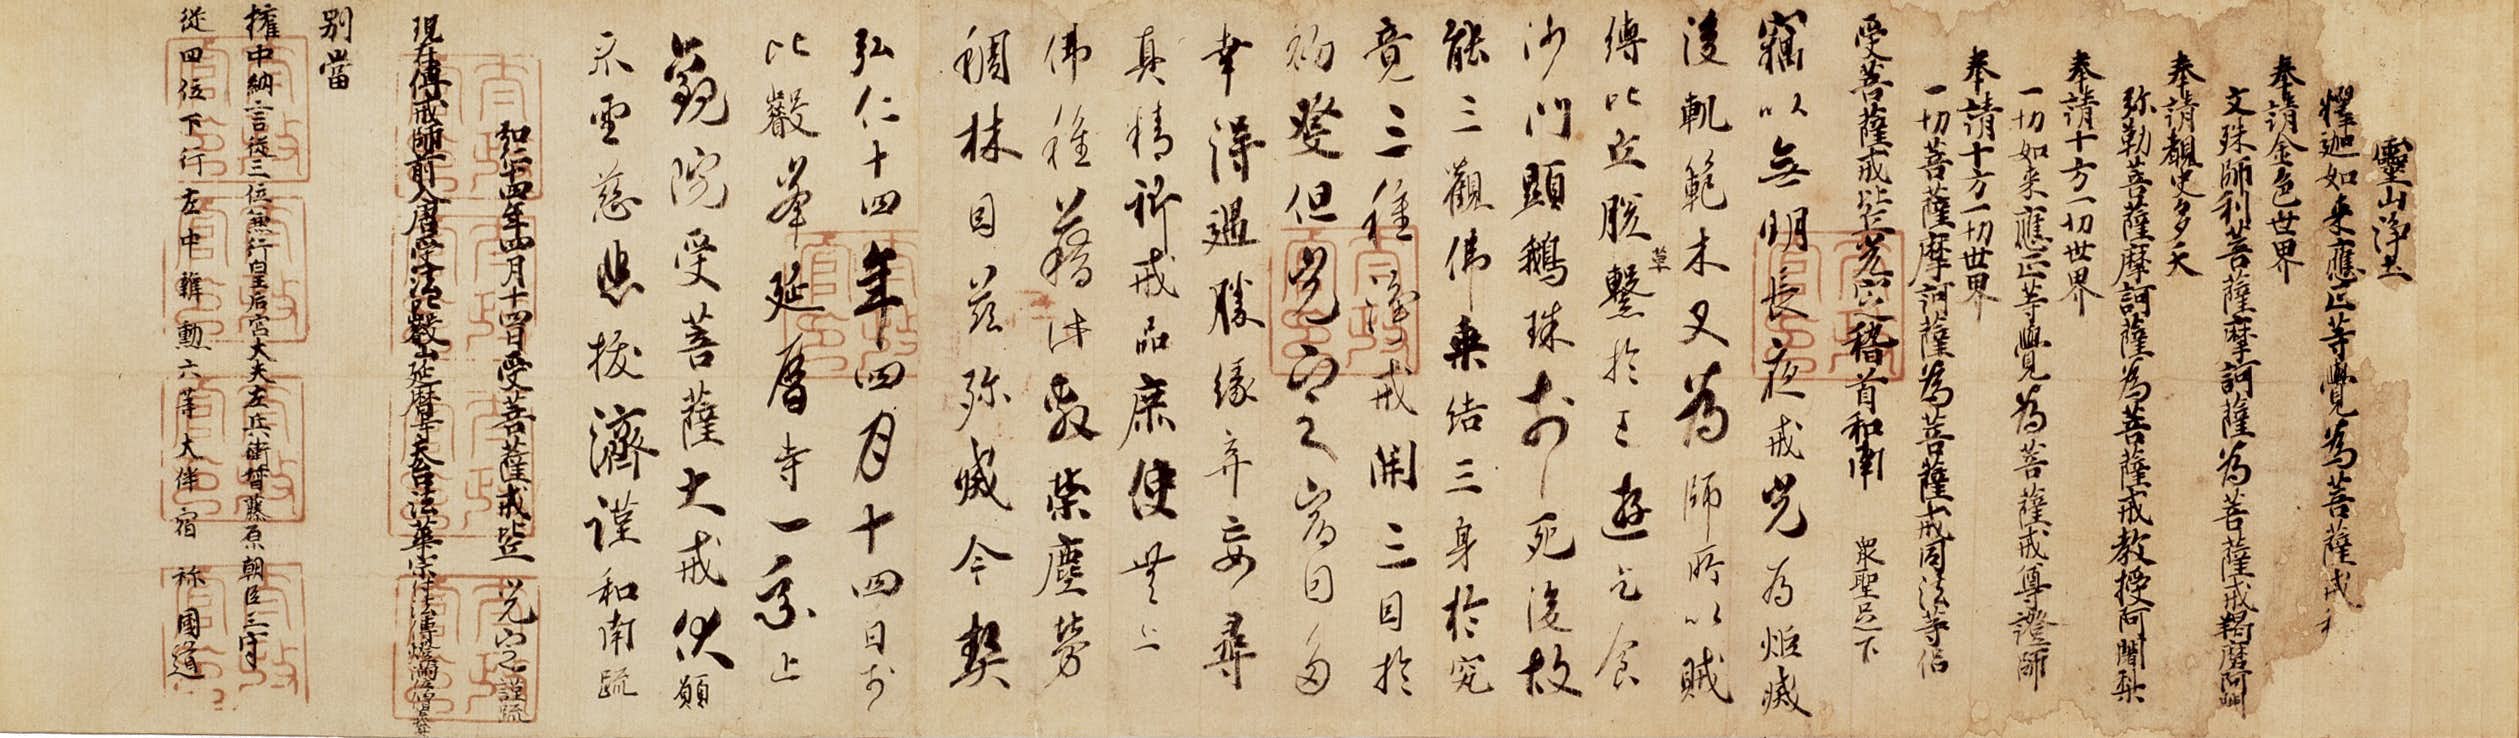 靈山淨土
釋迦如來應正等覺為菩薩戒和
奉請金色世界
文殊師利菩薩摩訶薩為菩薩戒羯磨阿闍
奉請覩史多天
弥勒菩薩摩訶薩為菩薩戒教授阿闍梨
奉請十方一切世界
一切如来應正等覺為菩薩戒尊證師
奉請十方一切世界
一切菩薩摩訶薩為菩薩戒同法等侶
受菩薩戒比丘光定稽首和南 衆聖足下
竊以無明長夜戒光為炬滅
後軌範木叉為師所以賊
縛比丘脱繫於王遊乞食
草
沙門顯鵝珠於死後故
能三觀佛乗結三身於究
竟三種淨戒開三因於
初發但光定之宿因多
幸得遇勝縁弃妄尋
真精祈戒品庶使無上
佛種藉此敷榮塵勞
稠林因茲弥滅今契
弘仁十四年四月十四日於
比叡峯延暦寺一乘止
觀院受菩薩大戒伏願
示垂慈悲拔濟謹和南疏
弘仁十四年四月十四日受菩薩戒比丘 光定謹疏
現在傳戒師前入唐受法比叡山延暦寺天台法華宗付法傳燈滿位僧義真
別當
權中納言從三位兼行皇后宮大夫左兵衛督藤原朝臣三守
從四位下行左中辨勳六等大伴宿祢國道